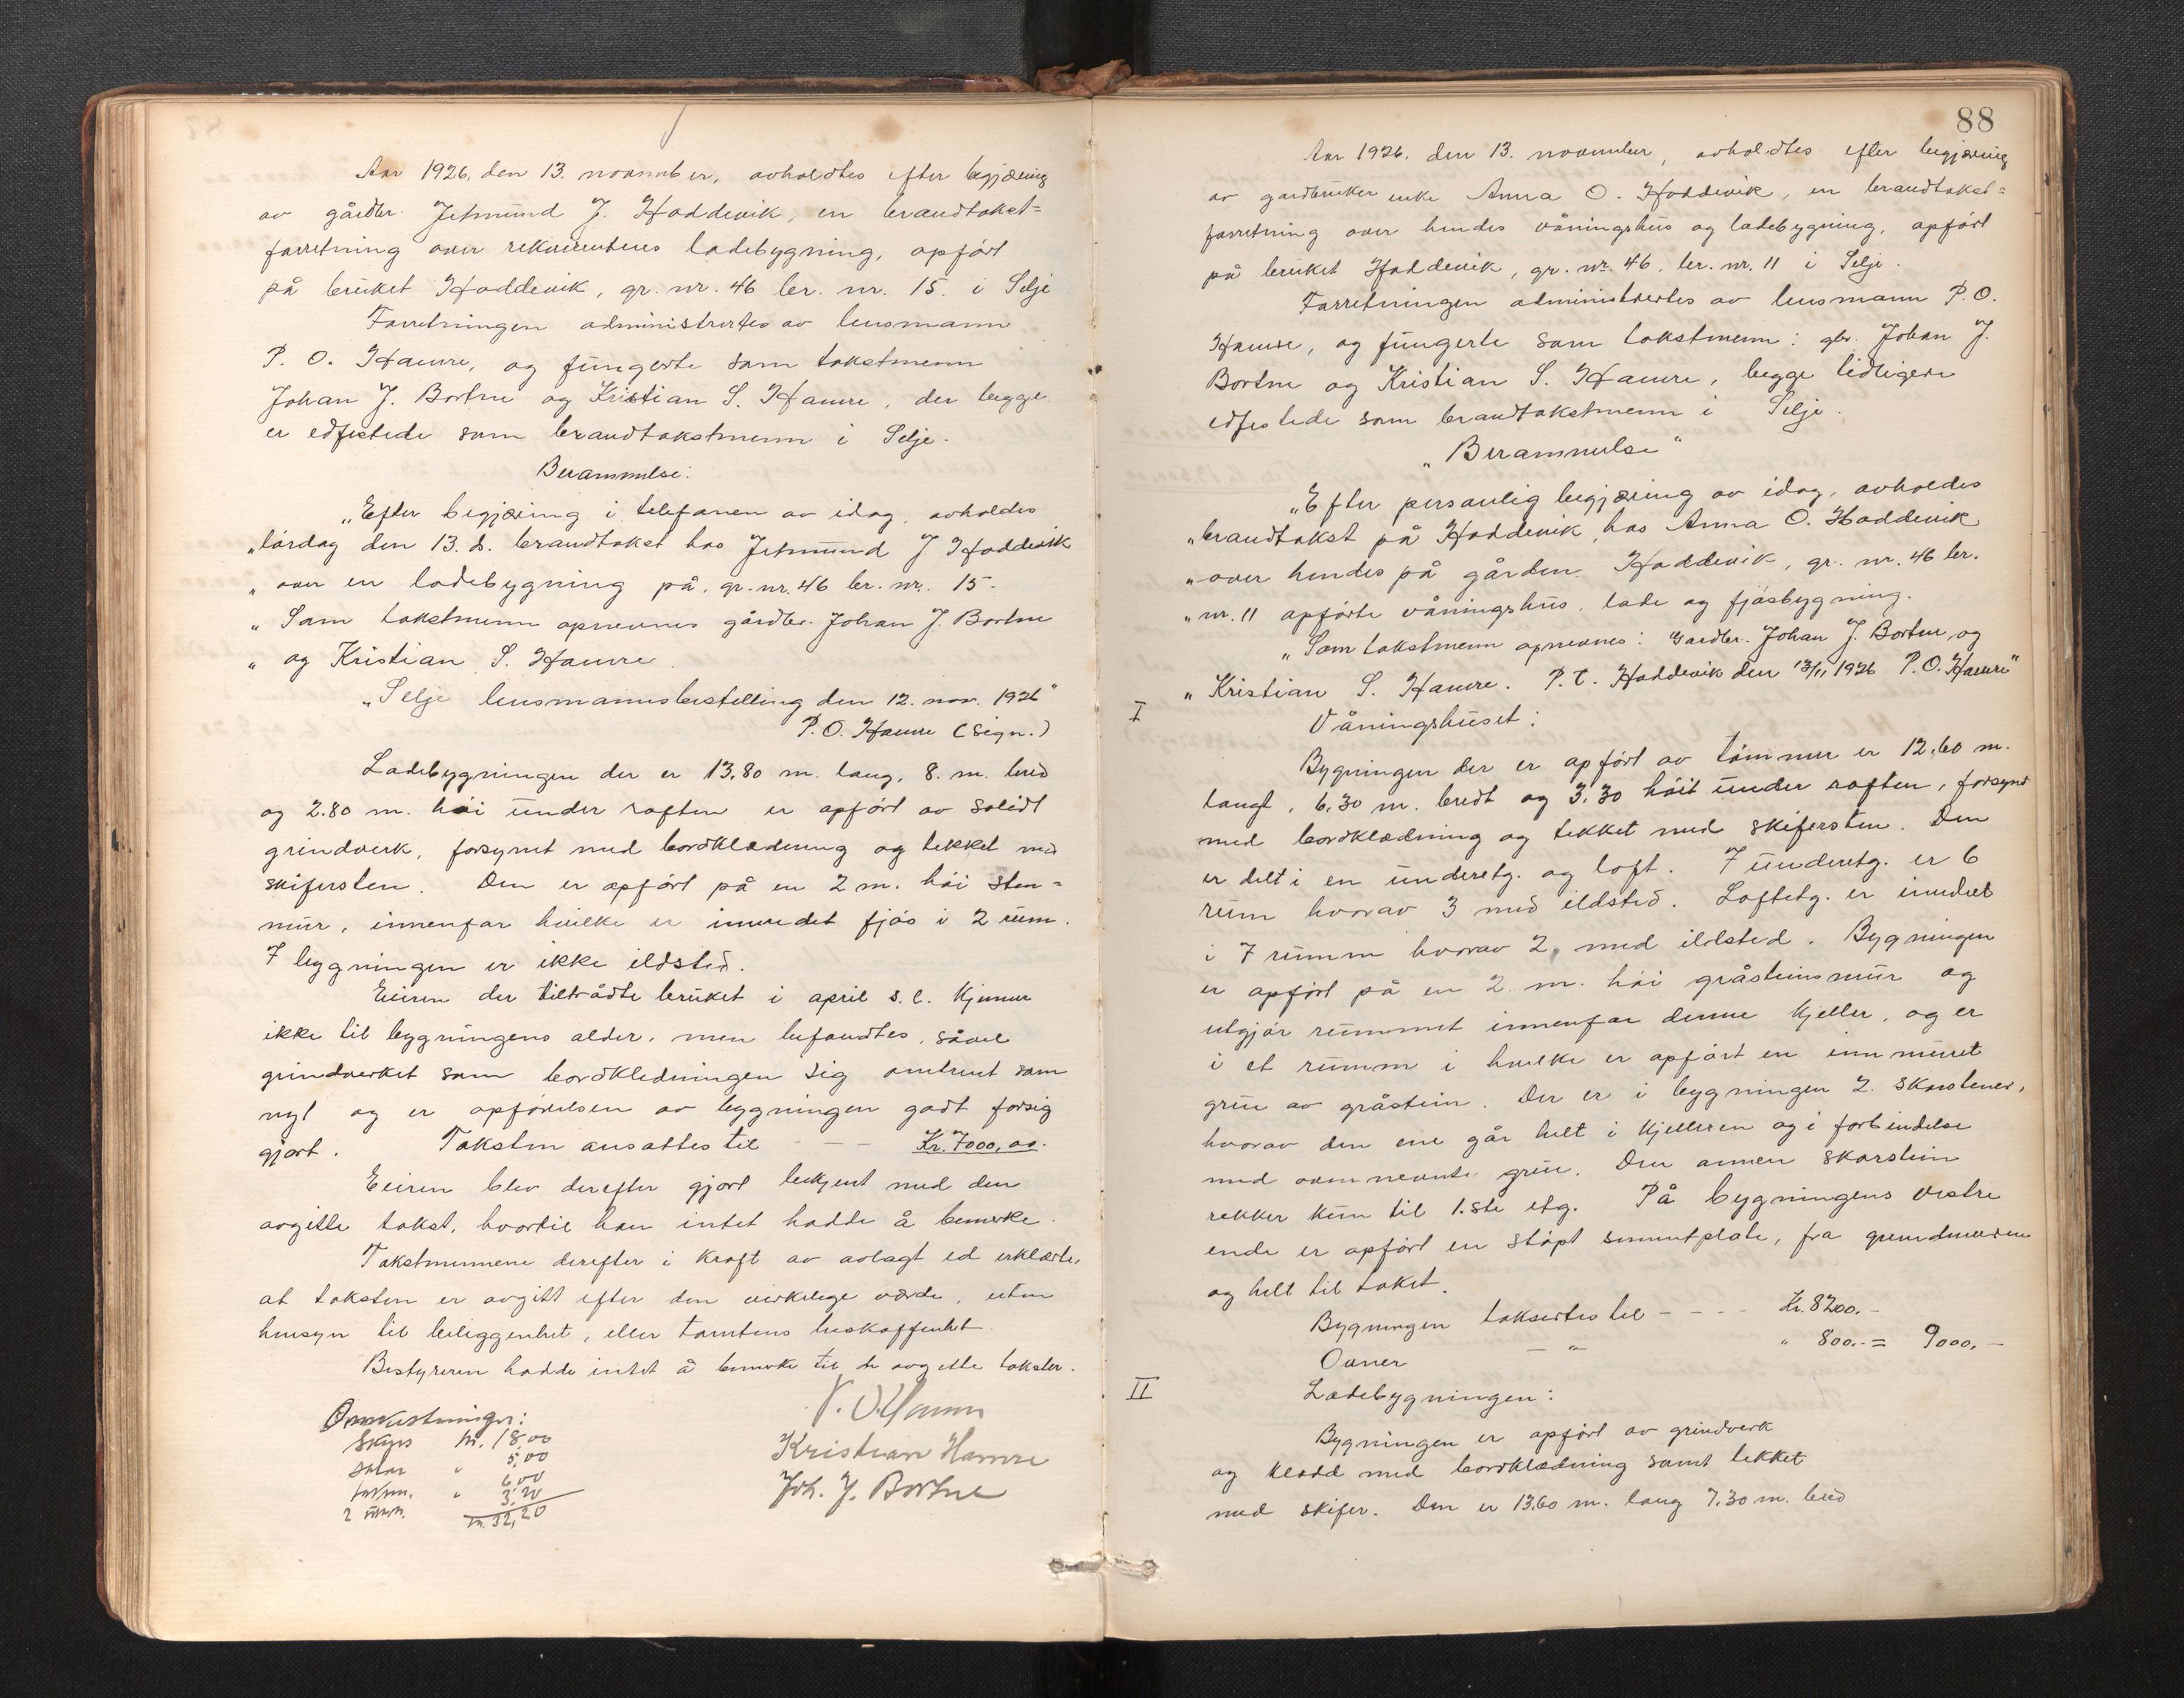 Aar 1926, den 13. november, avholdtes efter begjæring
av gårdbr. Jetmund J. Hoddevik, en brandtakst=
forretning over rekvirentens ladebygning, opført
på bruket Hoddevik, gr. nr. 46 br. nr. 15. i Selje
Forretningen administrertes av lensmann
P. O. Hamre, og fungerte som takstmenn
Johan J. Bortne og Kristian S. Hamre, der begge
er edfestede som brandtakstmenn i Selje.
Berammelse:
„Efter begjæring i telefonen av idag, avholdes
„lördag den 13. ds. brandtakst hos Jetmund J Hoddevik
„ over en ladebygning på gr. nr. 46 br. nr. 15.
„ Som takstmenn opnevnes gårdbr. Johan J. Bortne
„ og Kristian S. Hamre.
„Selje lensmannsbestilling den 12. nov. 1926"
P. O. Hamre (sign.)
Ladebygningen der er 13.80 m. lang, 8. m. bred
og 2.80 m. høi under raften er opført av solidt
grindverk, forsynet med bordklædning og tekket med
skifersten. Den er opført på en 2 m. høi sten=
mur, innenfor hvilke er innredet fjøs i 2 rum.
I bygningen er ikke ildsted.
Eieren der tiltrådte bruket i april s. l. kjenner
ikke til bygningens alder, men befandtes, såvel
grindverket som bordkledningen sig omtrent som
nyt og er opförelsen av bygningen godt forsig
gjort. Taksten ansattes til - - - Kr. 7000,00.
Eieren blev derefter gjort bekjent med den
avgitte takst, hvortil han intet hadde å bemerke.
Takstmennene derefter i kraft av avlagt ed erklærte,
at taksten er avgitt efter den virkelige værdi, uten
hensyn til beliggenhet, eller tomtens beskaffenhet.
Bestyreren hadde intet å bemerke til de avgitte takster.
P. O. Hamre
Omkostninger:
Skyss kr. 18,00
Kristian Hamre
5,00
6,00
Joh. J. Bortne
3,20
kr. 32,20
88
Aar 1926. den 13. november, avholdtes efter begjæring
av gardbruker enke Anna O. Hoddevik, en brandtakst=
forretning over hendes våningshus og ladebygning, opført
på bruket Hoddevik, gr. nr. 46. br. nr. 11 i Selje.
Forretningen administrertes av lensmann P. O.
Hamre, og fungerte som takstmenn: gbr. Johan J.
Bortne og Kristian S. Hamre, begge tidligere
edfestede som brandtakstmenn i Selje.
„Berammelse"
„Efter personlig begjæring av idag, avholdes
„brandtakst på Hoddevik, hos Anna O. Hoddevik
„over hendes på gården Hoddevik, gr. nr. 46 br.
„nr. 11 opførte våningshus, lade og fjøsbygning.
„Som takstmenn opnevnes: Gardbr. Johan J. Bortne, og
„Kristian S. Hamre. P. t. Hoddevik den 13/11 1926 P. O. Hamre"
I
Våningshuset:
Bygningen der er opført av tömmer er 12,60 m.
langt, 6,30 m. bredt og 3,30 høit under raften, forsynt
med bordklædning og tekket med skifersten. Den
er delt i en underetg. og loft. I underetg. er 6
rum hvorav 3 med ildsted. Loftetg. er inndelt
i 7 rumm hvorav 2, med ildsted. Bygningen
er opført på en 2 m. høi gråsteinsmur og
utgjør rummet innenfor denne kjeller, og er
i et rumm i hvilke er opført en innmuret
grue av gråstein. Der er i bygningen 2. skorstener,
hvorav den ene går helt i kjelleren og i forbindelse
med ovennevnte grue. Den annen skorstein
rekker kun til 1.ste etg. På bygningens vestre
ende er opført en støpt sementplate, fra grundmuren
og helt til taket.
Bygningen taksertes til - - - - Kr. 8200.-
Ovner — „ — „ 800.- = 9000.-
II
Ladebygningen:
Bygningen er opført av grindverk
og kledd med bordklædning samt tekket
med skifer. Den er 13.60 m. lang 7.30 m. bred